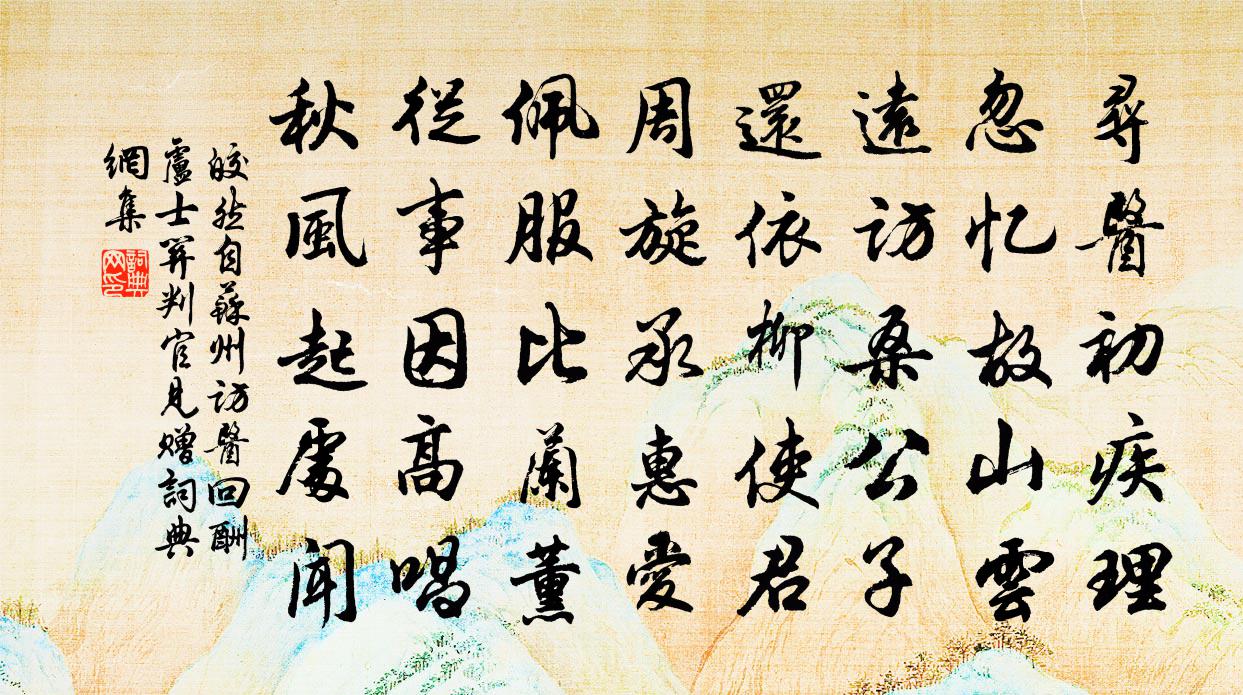 尋醫初疾理
忽忆故山雲
遠訪桑公子
還依柳使君
周旋承惠愛
佩服比蘭薰
從事因高唱
秋風起處聞
皎然自蘇州訪醫回酬
盧士關判官見贈詞典
網集
詞典
网印